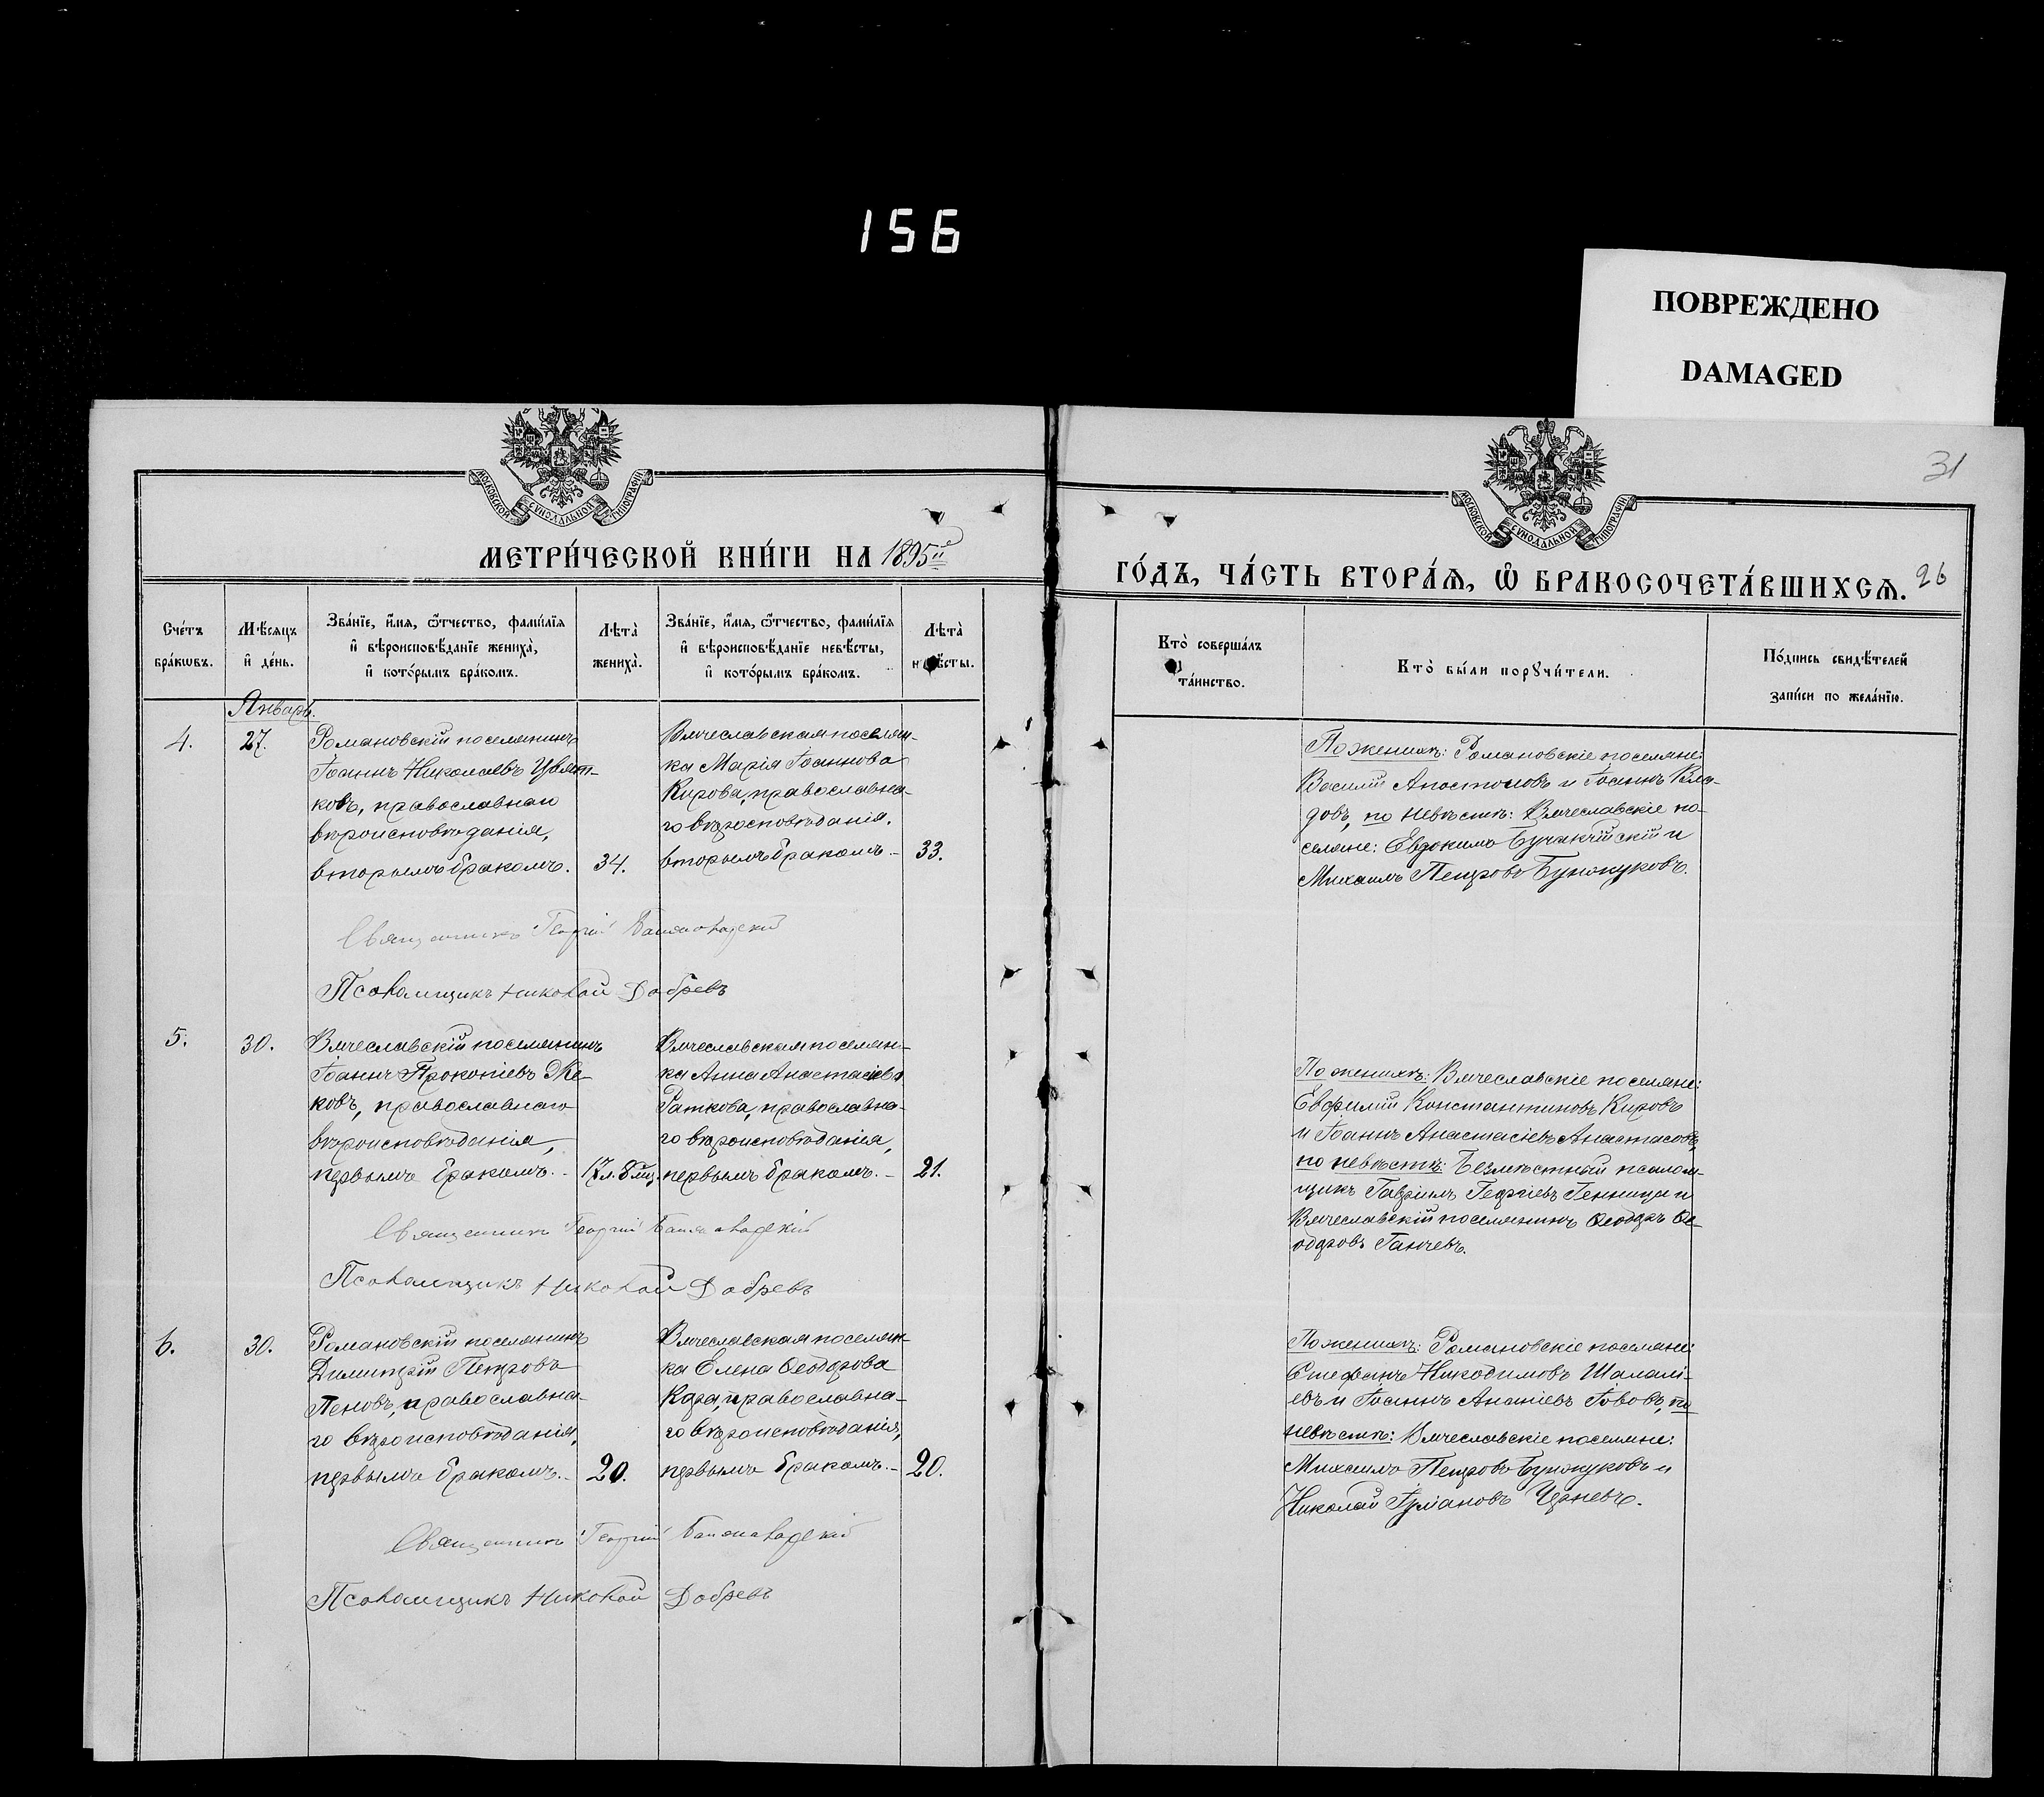 156
ПОВРЕЖДЕНО
DAMAGED
31
МОСКОВСКОЙ СѴНОДАЛЬНОЙ ТИПОГРАФІИ
МОСКОВСКОЙ СѴНОДАЛЬНОЙ ТИПОГРАФІИ
МЕТРИ́ЧЕСКОЙ КНИ́ГИ НА 1895й
ГО́ДЪ, ЧА́СТЬ ВТОРА́Ѧ, Ѽ БРАКОСОЧЕТА́ВШИХСѦ. 26
Сче́тъ бра́кѡвъ.
Мѣ́сяцъ и҆ де́нь.
Зва́нїе, и҆́мя, ѻ҆́тчество, фами́лїя
и҆ вѣроисповѣ́данїе жениха̀,
и҆ кото́рымъ бра́комъ.
Лѣта̀ жениха̀.
Зва́нїе, и҆́мя, ѻ҆́тчество, фами́лїя
и҆ вѣроисповѣ́данїе невѣ́сты,
и҆ кото́рымъ бра́комъ.
Лѣта̀
Кто̀ соверша́лъ
та́инство.
Кто̀ бы́ли порꙋчи́тели.
По́дпись свидѣ́телей
за́писи по жела́нїю.
Январь.
4.
27.
Романовскій поселянинъ
Іоаннъ Николаевъ Цвят-
ковъ, православнаго
вѣроисповѣданія,
вторымъ бракомъ.
34.
Вячеславская поселян-
ка Марія Іоаннова
Кирова, православна-
го вѣроисповѣданія,
вторымъ бракомъ.-
33.
По женихѣ: Романовскіе поселяне:
Василій Апостоловъ и Іоаннъ Вла-
довъ, по невѣстѣ: Вячеславскіе по-
селяне: Евдокимъ и
Михаилъ Петровъ Бунжуковъ.
Священникъ Георгій
Псаломщикъ Николай Добревъ
5.
30.
Вячеславскій поселянинъ
Іоаннъ Прокопіевъ Же-
ковъ, православнаго
вѣроисповѣданія,
первымъ бракомъ.-
17 л. 8 мц.
Вячеславская поселян-
ка Анна Анастасіева
Раткова, православна-
го вѣроисповѣданія,
первымъ бракомъ.-
21.
По женихѣ: Вячеславскіе поселяне:
Евфимій Константиновъ Кировъ
и Іоаннъ Анастасіевъ Анастасовъ,
по невѣстѣ: Безмѣстный псалом-
щикъ Гавріилъ Георгіевъ Генница и
Вячеславскій поселянинъ Ѳеодоръ Ѳе-
одоровъ Ганчевъ.
Священникъ Георгій
Псаломщикъ Николай Добревъ
6.
30.
Романовскій поселянинъ
Димитрій Петровъ
Пеновъ, православна-
го вѣроисповѣданія,
первымъ бракомъ.-
20.
Вячеславская поселян-
ка Елена Ѳеодорова
Кара, православна-
го вѣроисповѣданія,
первымъ бракомъ.-
20.
По женихѣ: Романовскіе поселяне:
Стефанъ Никодимовъ Шамалі-
евъ и Іоаннъ Ананіевъ Гововъ, по
невѣстѣ: Вячеславскіе поселяне:
Михаилъ Петровъ Бунжуковъ и
Николай Чорневъ.
Священникъ Георгій
Псаломщикъ Николай Добревъ